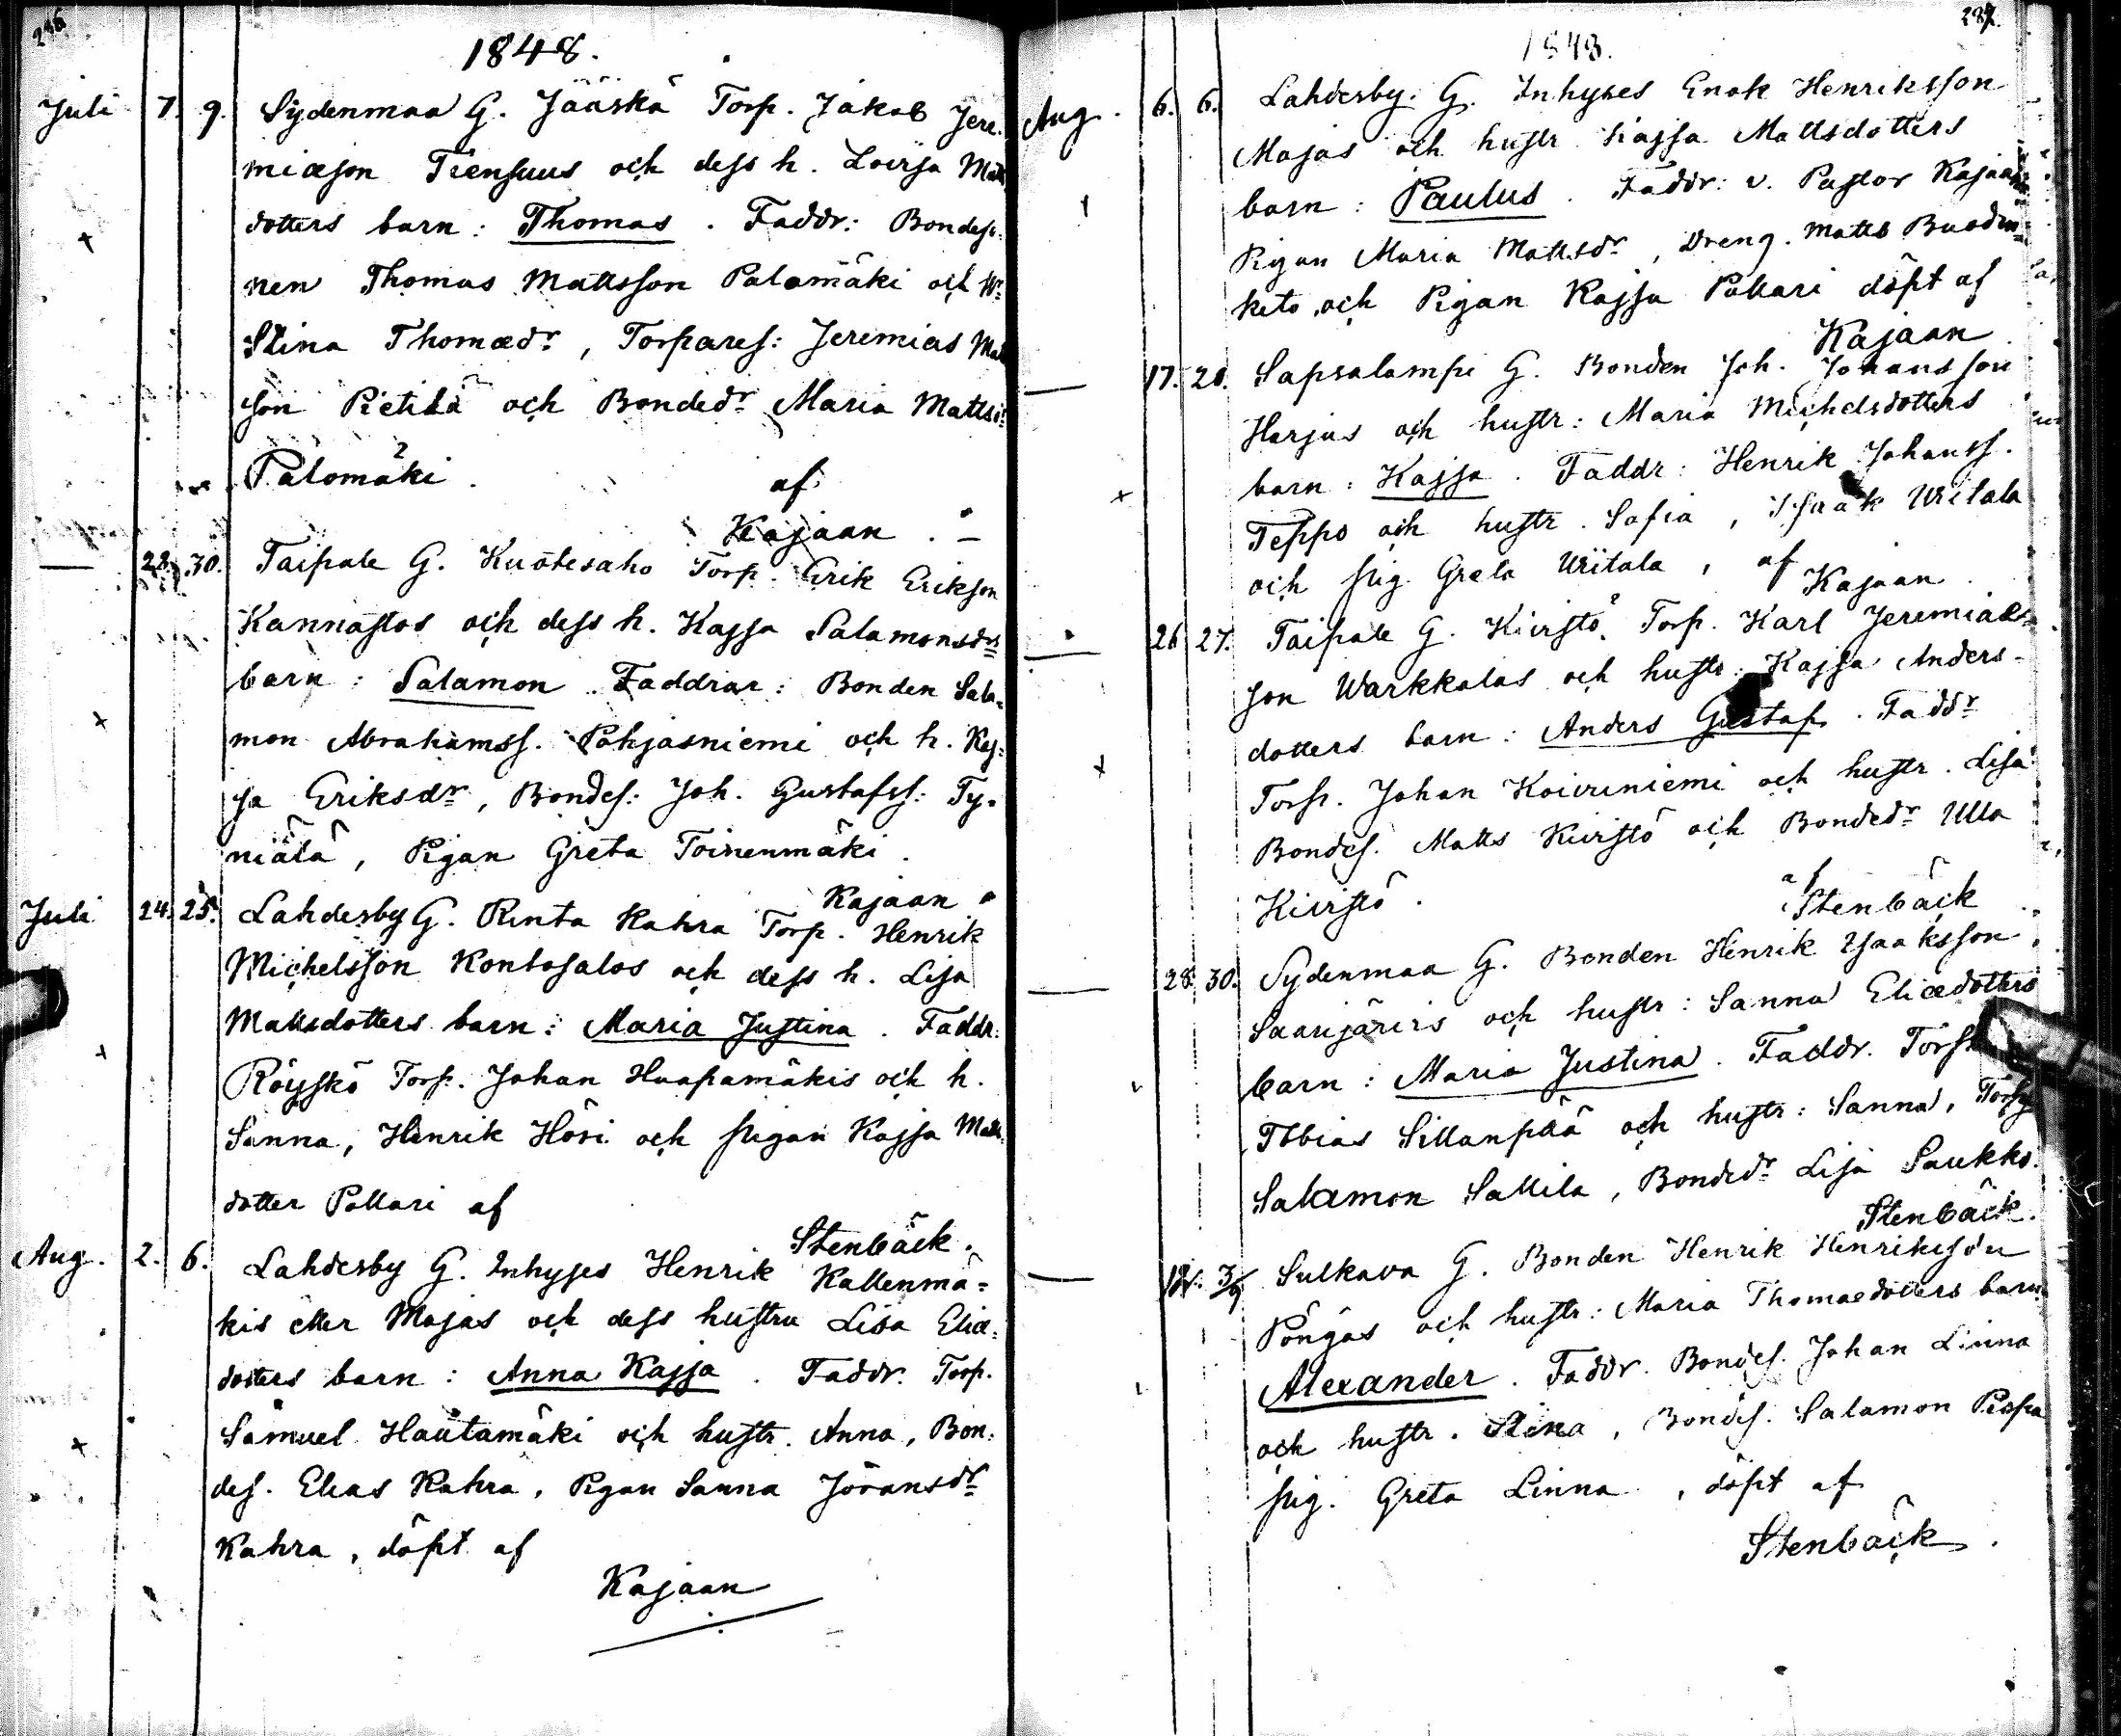 286.
1848.
Juli 7. 9. Sydenmaa G. Jääskä Torp. Jakob Jere-
miæson Tiensuus och dess h. Lovisa Matts
dotters barn: Thomas. Faddr: Bondes.
nen Thomas Mattsson Palomäki och
Stina Thomædr, Torpares: Jeremias Matts
son Pietilä och Bondedr Maria Mattsdr
Palomäki. af
Kajaan.
28. 30. Taipale G. Kuotesaho Torp. Erik Erikson
Kannastos och dess h. Kajsa Salamonsdrs
barn: Salamon. Faddrar: Bonden Sala-
mon Abrahamss. Pohjasniemi och h. Kaj-
sa Eriksdr, Bondes: Joh. Gustafss: Ty-
niälä, Pigan Greta Toinenmäki.
Kajaan
Juli 24. 25. Lahdesby G. Rinta Kahra Torp. Henrik
Michelsson Kontosalos och dess h. Lisa
Mattsdotters barn: Maria Justina. Faddr:
Röyskö Torp. Johan Haapamäkis och h.
Sanna, Henrik Hosi och pigan Kajsa Matts
dotter Pollari af
Stenbäck.
Aug. 2. 6. Lahdesby G. Inhyses Henrik Kallenmä-
kis eller Majas och dess hustru Lisa Eliæ-
dotters barn: Anna Kajsa. Faddr. Torp.
Samuel Hautamäki och hustr. Anna, Bon-
des. Elias Kahra, Pigan Sanna Jöransdr
Kahra, döpt af
Kajaan
287.
1848.
Aug. 6. 6. Lahdesby G. Inhyses Enok Henriksson
Majas och hustr. Kajsa Mattsdotters
barn: Paulus. Faddr: v. Pastor Kajaan
Pigan Maria Mattsdr, Dreng. Matts
keto och Pigan Kajsa Pollari döpt af
Kajaan.
17. 20. Sapsalampi G. Bonden Joh. Johansson
Harjus och hustr: Maria Michelsdotters
barn: Kajsa. Faddr: Henrik Johanss.
Teppo och hustr. Sofia, Isaak Uitala
och pig. Greta Uitala, af
Kajaan.
26 27. Taipale G. Kivistö Torp. Karl Jeremiæs-
son Warkkalas och hustr. Kajsa Anders-
dotters barn: Anders Gustaf. Faddr
Torp. Johan Koivuniemi och hustr. Lisa
Bondes. Matts Kivistö och Bondedr Ulla
Kivistö. af
Stenbäck
28. 30. Sydenmaa G. Bonden Henrik Isaaksson
Saarijärvis och hustr: Sanna Eliædotters
barn: Maria Justina. Faddr. Torp
Tobias Sillanpää och hustr: Sanna, Torp
Salamon Sallila, Bondedr Lisa Saukko.
Stenbäck.
3/9 Sulkava G. Bonden Henrik Henriksson
Pöngäs och hustr: Maria Thomædotters barn
Alexander. Faddr. Bondes. Johan Linna
och hustr. Stina, Bondes. Salamon Pispa
pig. Greta Linna, döpt af
Stenbäck.